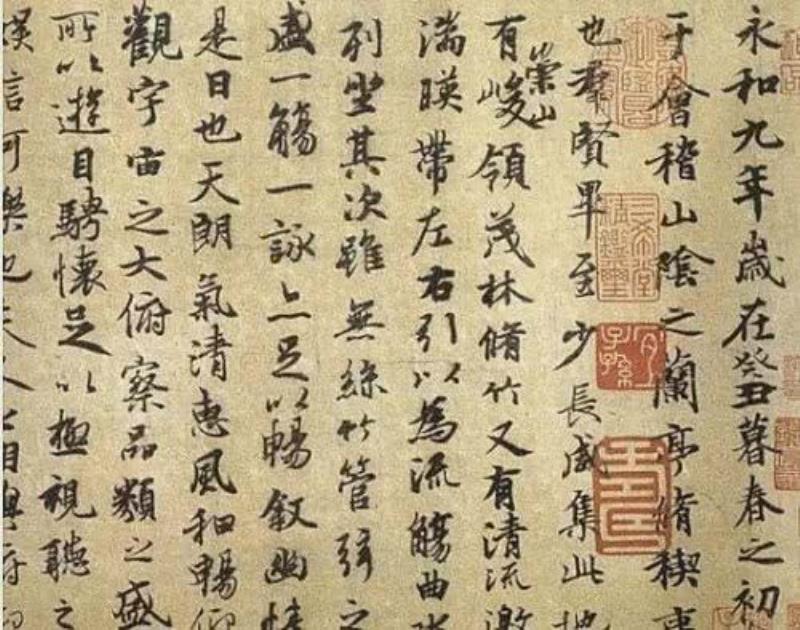 永和九年歲在癸丑暮春之初
于會稽山陰之蘭亭脩禊事
也羣賢畢至少長咸集此地
有崇山峻領茂林脩竹又有清流激
湍暎帶左右引以為流觴曲水
列坐其次雖無絲竹管弦之
盛一觴一詠亦足以暢敘幽情
是日也天朗氣清惠風和暢仰
觀宇宙之大俯察品類之盛
所以遊目騁懷足以極視聽之
娛信可樂也夫人之相與俯仰
三希堂精鑑璽
宜子孫